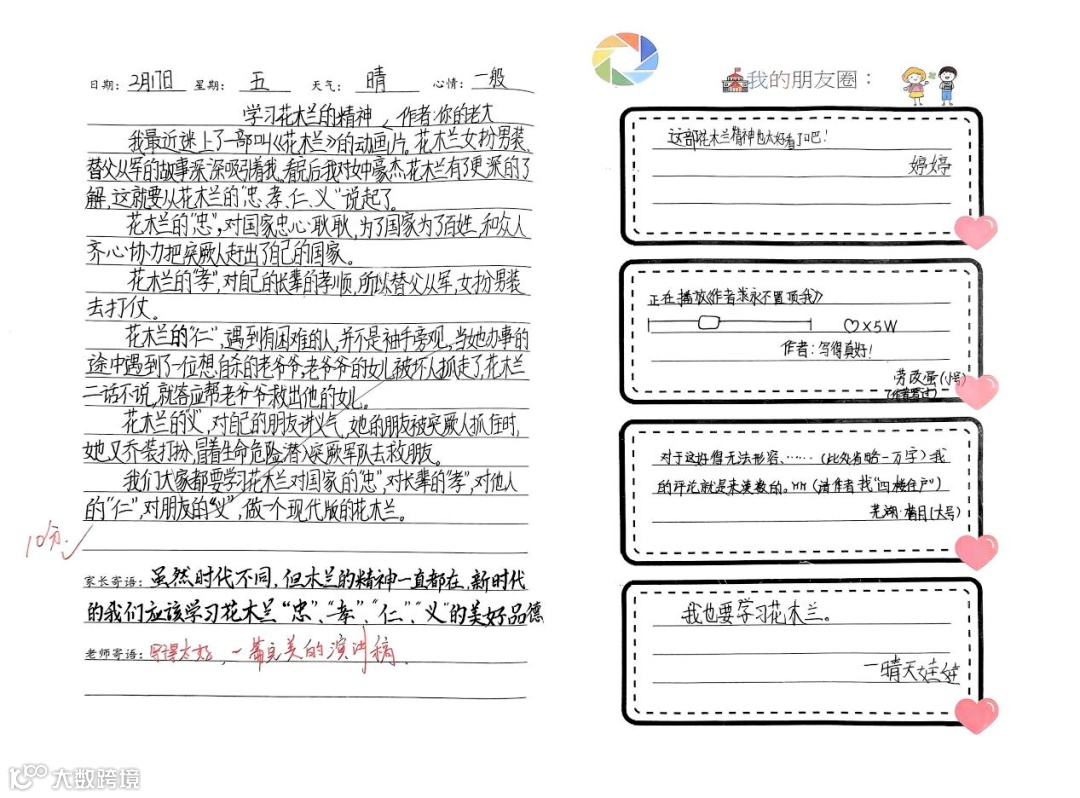 日期：2月17日 星期：五 天气：晴 心情：一般
学习花木兰的精神 作者:你的老大
我最近迷上了一部叫《花木兰》的动画片,花木兰女扮男装,
替父从军的故事深深吸引着我。看完后我对女中豪杰花木兰有了更深的了
解,这就要从花木兰的“忠、孝、仁、义”说起了。
花木兰的“忠”,对国家忠心耿耿,为了国家为了百姓,和众人
齐心协力把突厥人赶出了自己的国家。
花木兰的“孝”,对自己的长辈的孝顺,所以替父从军,女扮男装
去打仗。
花木兰的“仁”,遇到有困难的人,并不是袖手旁观,当她办事的
途中遇到了一位想自杀的老爷爷,老爷爷的女儿被坏人抓走了,花木兰
二话不说,就答应帮老爷爷救出他的女儿。
花木兰的“义”,对自己的朋友讲义气,她的朋友被突厥人抓住时,
她又乔装打扮,冒着生命危险潜入突厥军队去救朋友。
我们大家都要学习花木兰对国家的“忠”,对长辈的“孝”,对他人
的“仁”,对朋友的“义”,做一个现代版的花木兰。
10分
家长寄语：虽然时代不同,但木兰的精神一直都在,新时代
的我们应该学习花木兰“忠”、“孝”、“仁”、“义”的美好品德
老师寄语：写得太好,一篇完美的演讲稿.
我的朋友圈：
这部花木兰精神也太好看了吧!
婷婷
正在播放《作者求永不置顶我》
♡×5W
作者:写得真好!
劳改蛋(小号)
对于这好得无法形容、……(此处省略一万字)我
的评论就是来凑数的。(请作者我“四楼住户”)
芜湖·(大号)
我也要学习花木兰。
一晴天娃娃
大数跨境